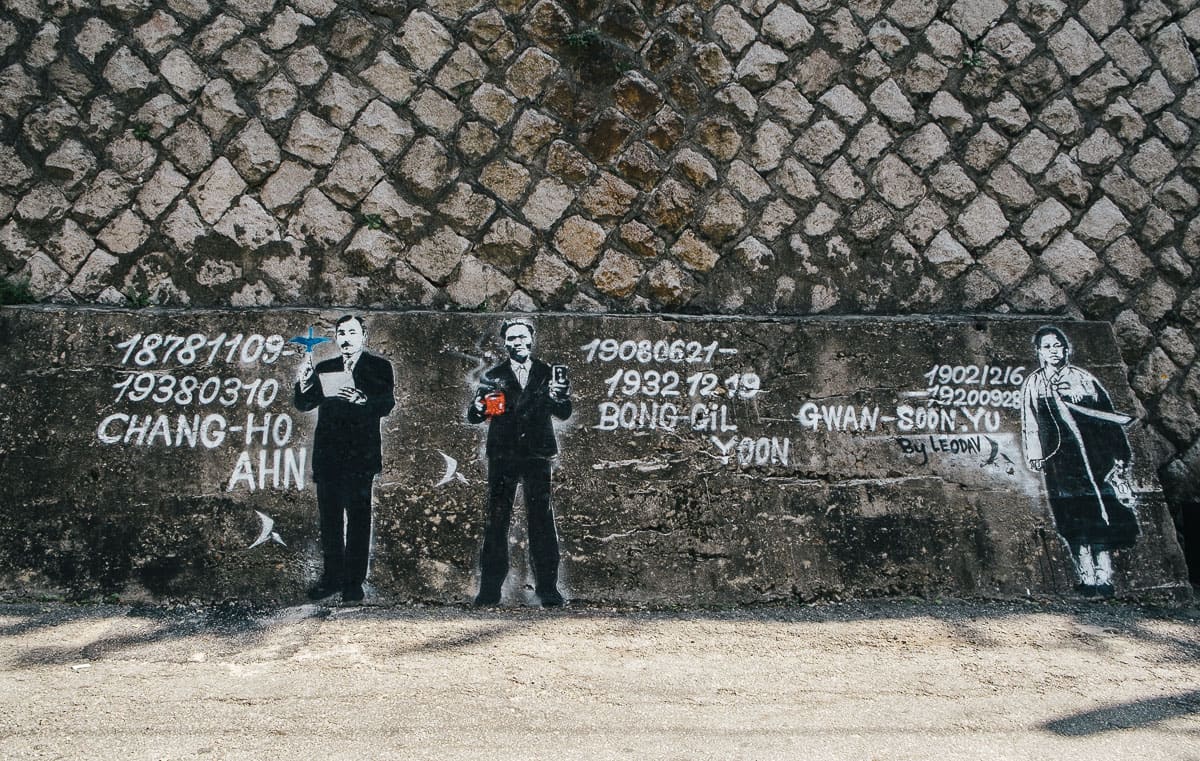 18781109-
19380310
CHANG-HO
AHN
19080621-
1932 12.19
BONG-GIL
YOON
19021216
-19200928
GWAN-SOON.YU
By LEODAV